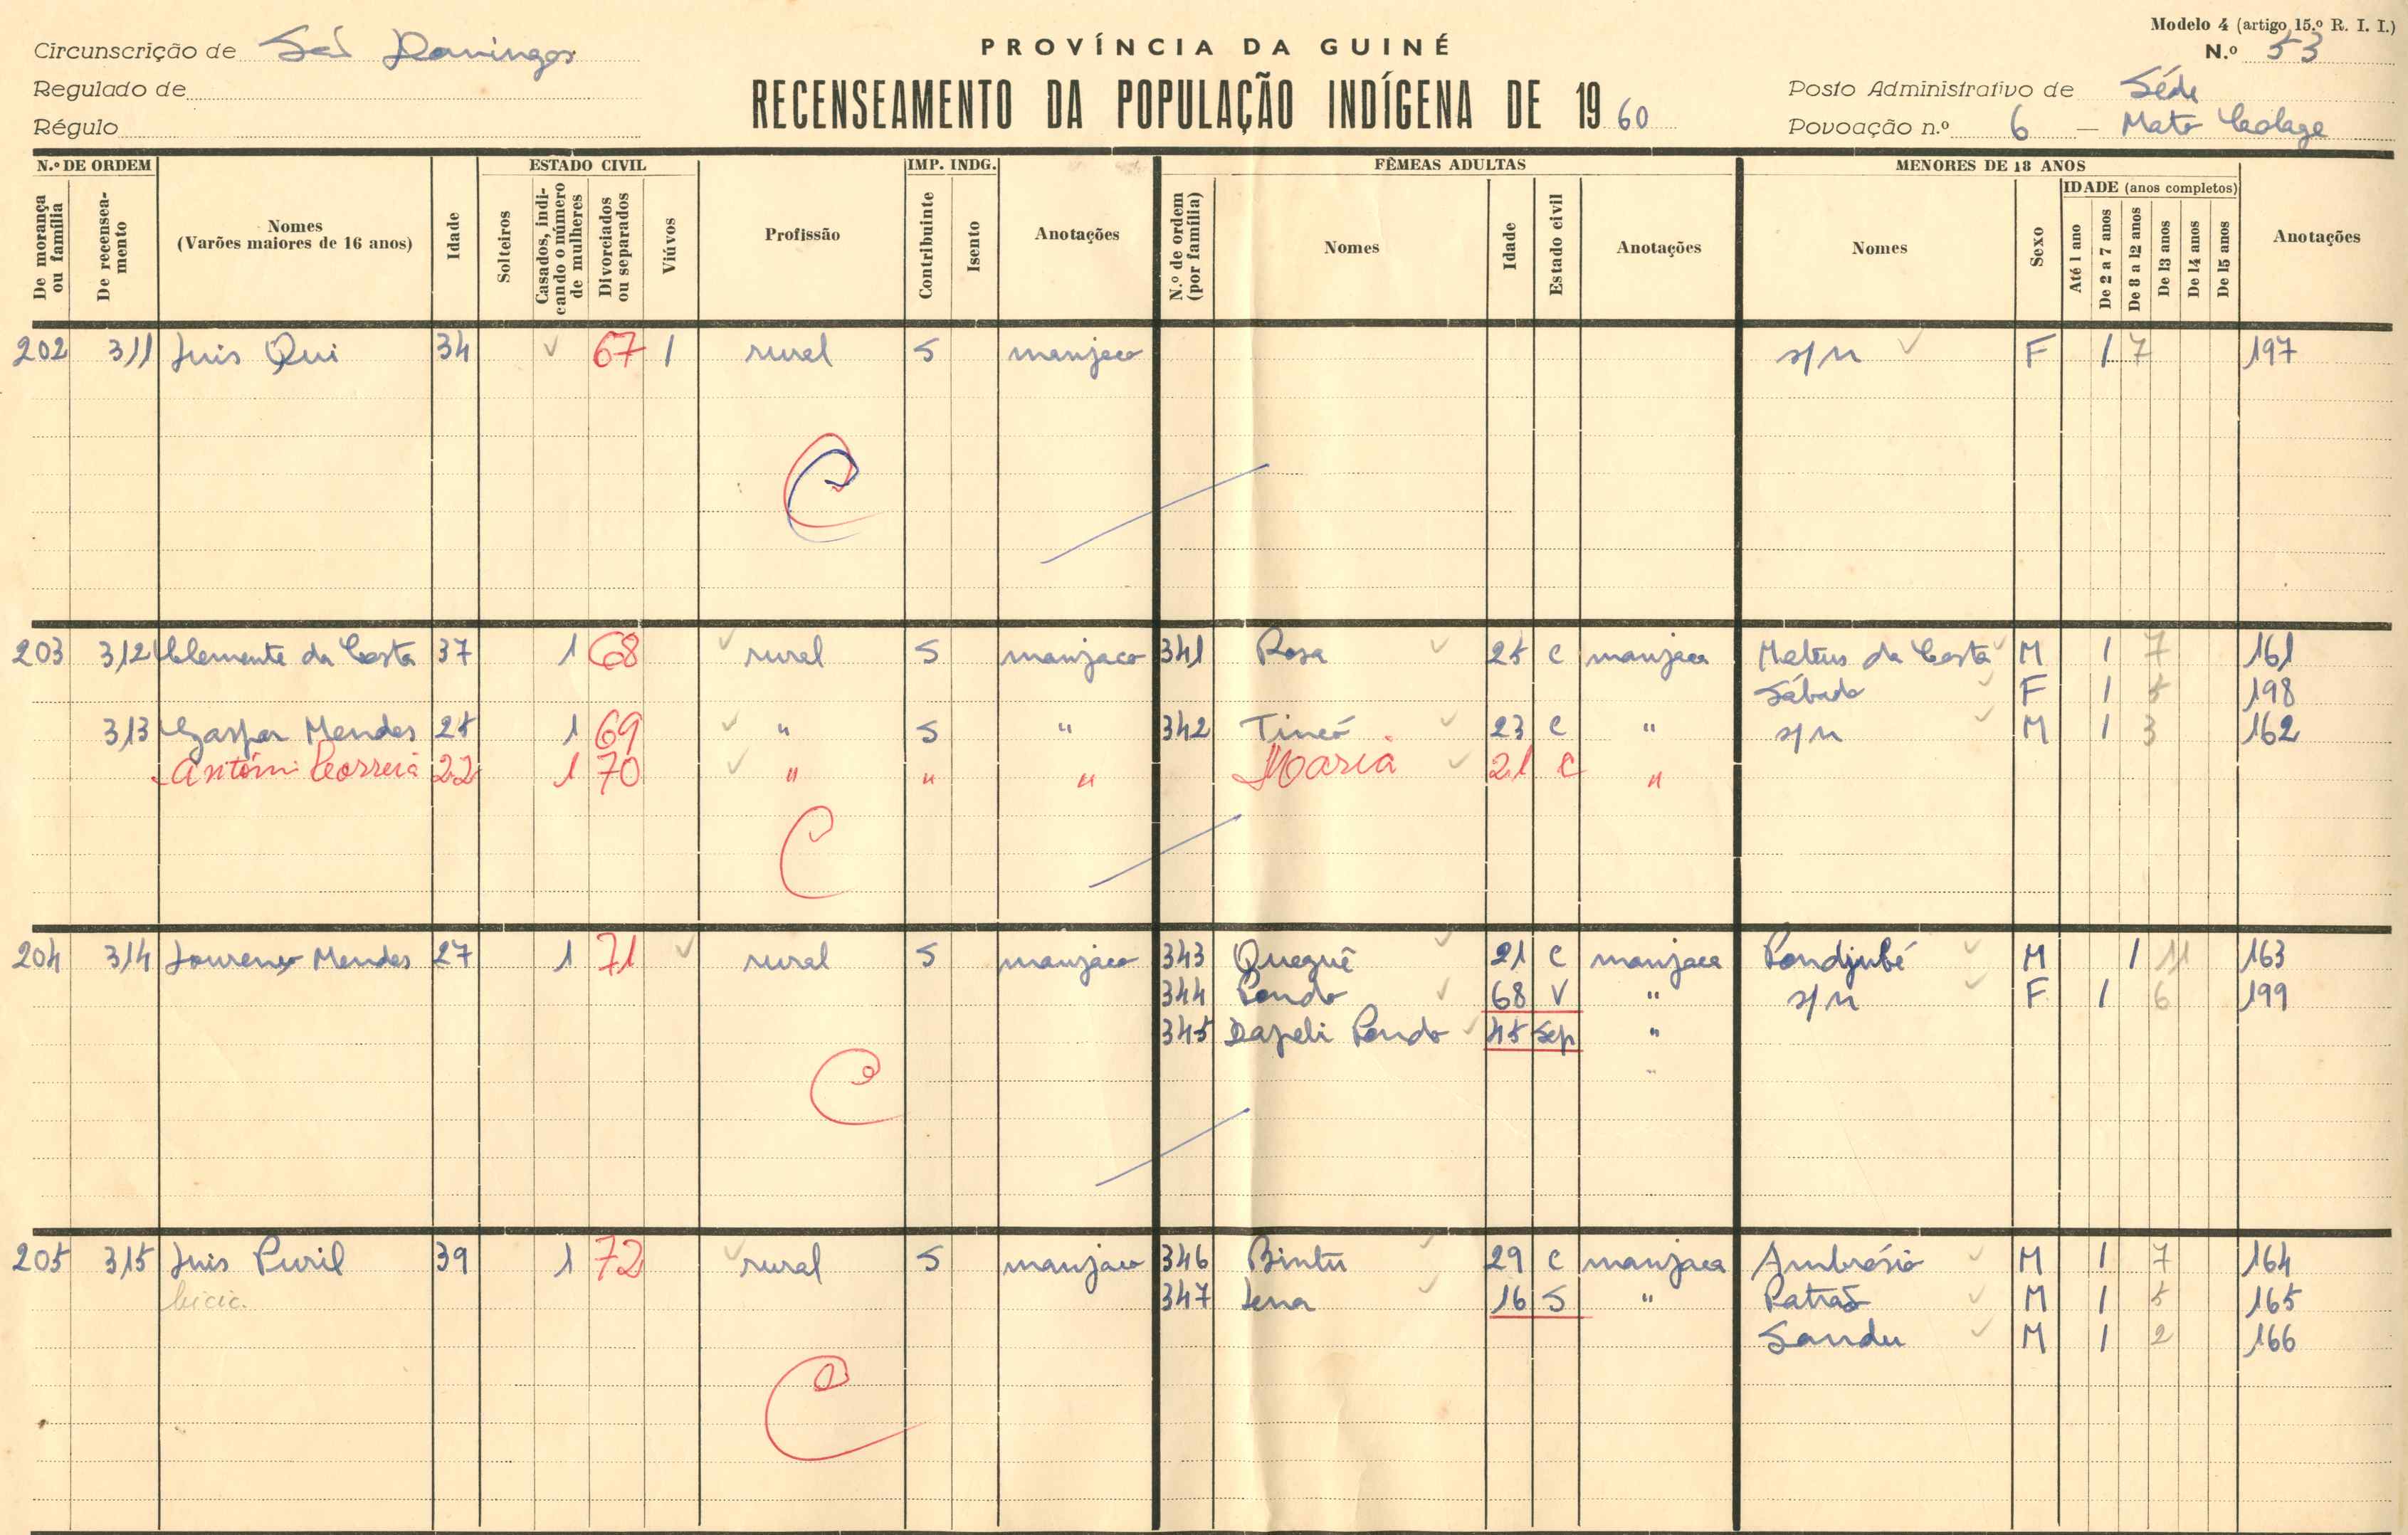 Modelo 4 (artigo 15.º R. I. I.)
Circunscrição de São Domingos
PROVÍNCIA DA GUINÉ
N.º 53
Regulado de
RECENSEAMENTO DA POPULAÇÃO INDÍGENA DE 1960
Posto Administrativo de Séde
Régulo
Povoação n.º 6 — Mato
N.º DE ORDEM
ESTADO CIVIL
IMP. INDG.
FÊMEAS ADULTAS
MENORES DE 18 ANOS
IDADE (anos completos)
De morança ou família
De recenseamento
Nomes
(Varões maiores de 16 anos)
Idade
Solteiros
Casados, indicando o número de mulheres
Divorciados ou separados
Viúvos
Profissão
Contribuinte
Isento
Anotações
N.º de ordem (por família)
Nomes
Idade
Estado civil
Anotações
Nomes
Sexo
Até 1 ano
De 2 a 7 anos
De 8 a 12 anos
De 13 anos
De 14 anos
De 15 anos
Anotações
202 311 Luis Qui 34 67 1 rural S manjaco s/n F 1 7 197
C
203 312 Clemente da Costa 37 1 68 rural S manjaco 341 Rosa 25 C manjaca Mateus da Costa M 1 7 161
Sábado F 1 5 198
313 Gaspar Mendes 25 1 69 " S " 342 Tincó 23 C " s/n M 1 3 162
Antóni Correia 22 1 70 " " " Maria 21 C "
C
204 314 Lourenço Mendes 27 1 71 rural S manjaco 343 Queguê 21 C manjaca Pondjubé M 1 11 163
344 Pondo 68 V " s/n F 1 6 199
345 Dapeli Pondo 45 Sep "
"
C
205 315 Luis Puril 39 1 72 rural S manjaco 346 Bintu 29 C manjaca Ambrósio M 1 7 164
bicic. 347 Lena 16 S " Patrão M 1 5 165
Sandu M 1 2 166
C